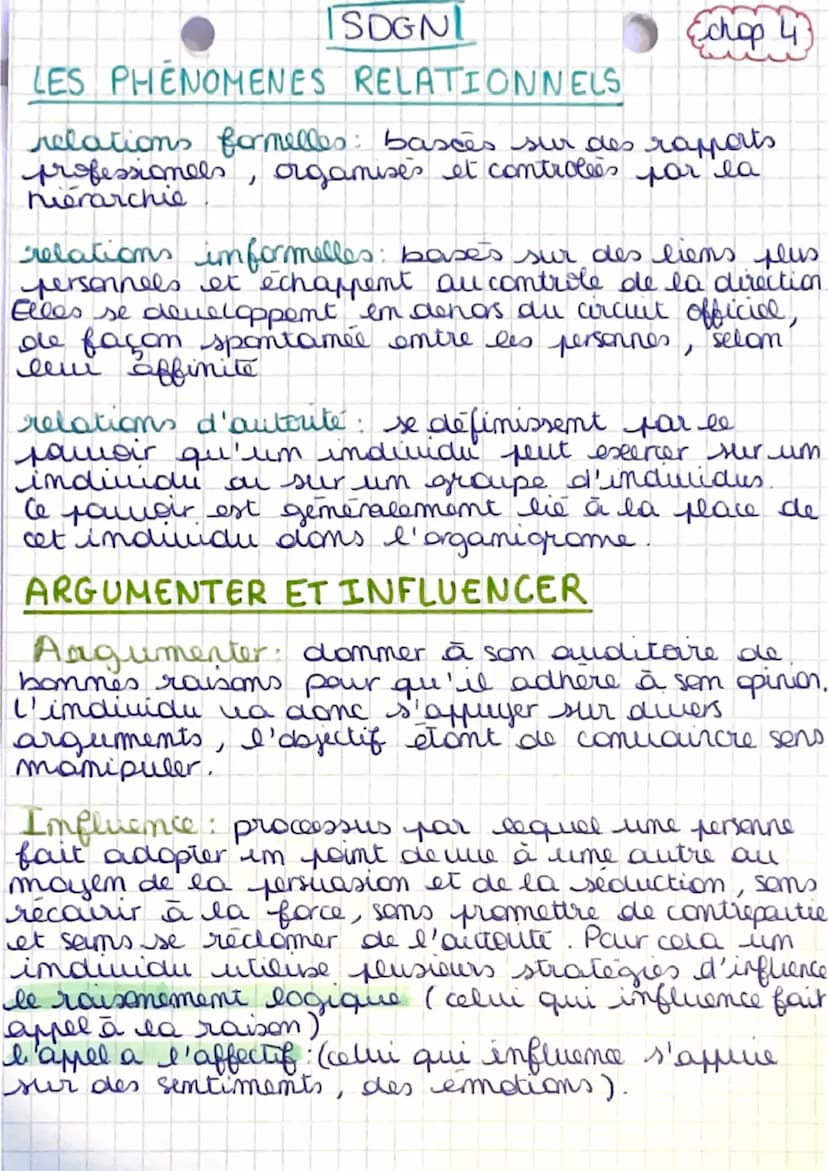 SDGN
chap 4
LES PHÉNOMENES RELATIONNELS
relations formelles : basées sur des rapports
professionnels, organisés et controlées par la
hiérarchie.
relations informelles : basés sur des liens plus
personnels et échappent au controle de la direction
Elles se developpent en dehors du circuit officiel,
de façon spontanée entre les personnes, selon
leur affinité
relations d'autorité : se définissent par le
pouvoir qu'un individu peut exercer sur un
individu ou sur un groupe d'individus.
Ce pouvoir est généralement lié à la place de
cet individu dans l'organigrame.
ARGUMENTER ET INFLUENCER
Argumenter : donner à son auditoire de
bonnes raisons pour qu'il adhère à son opinion.
L'individu va donc s'appuyer sur divers
arguments, l'objectif étant de convaincre sans
manipuler.
Influence : processus par lequel une personne
fait adopter un point de vue à une autre au
moyen de la persuasion et de la séduction, sans
récourir à la force, sans promettre de contrepartie
et sans se réclamer de l'autorité. Pour cela un
individu utilise plusieurs stratégies d'influence
le raisonnement logique (celui qui influence fait
appel à la raison)
l'appel a l'affectif : (celui qui influence s'appuie
sur des sentiments, des émotions).